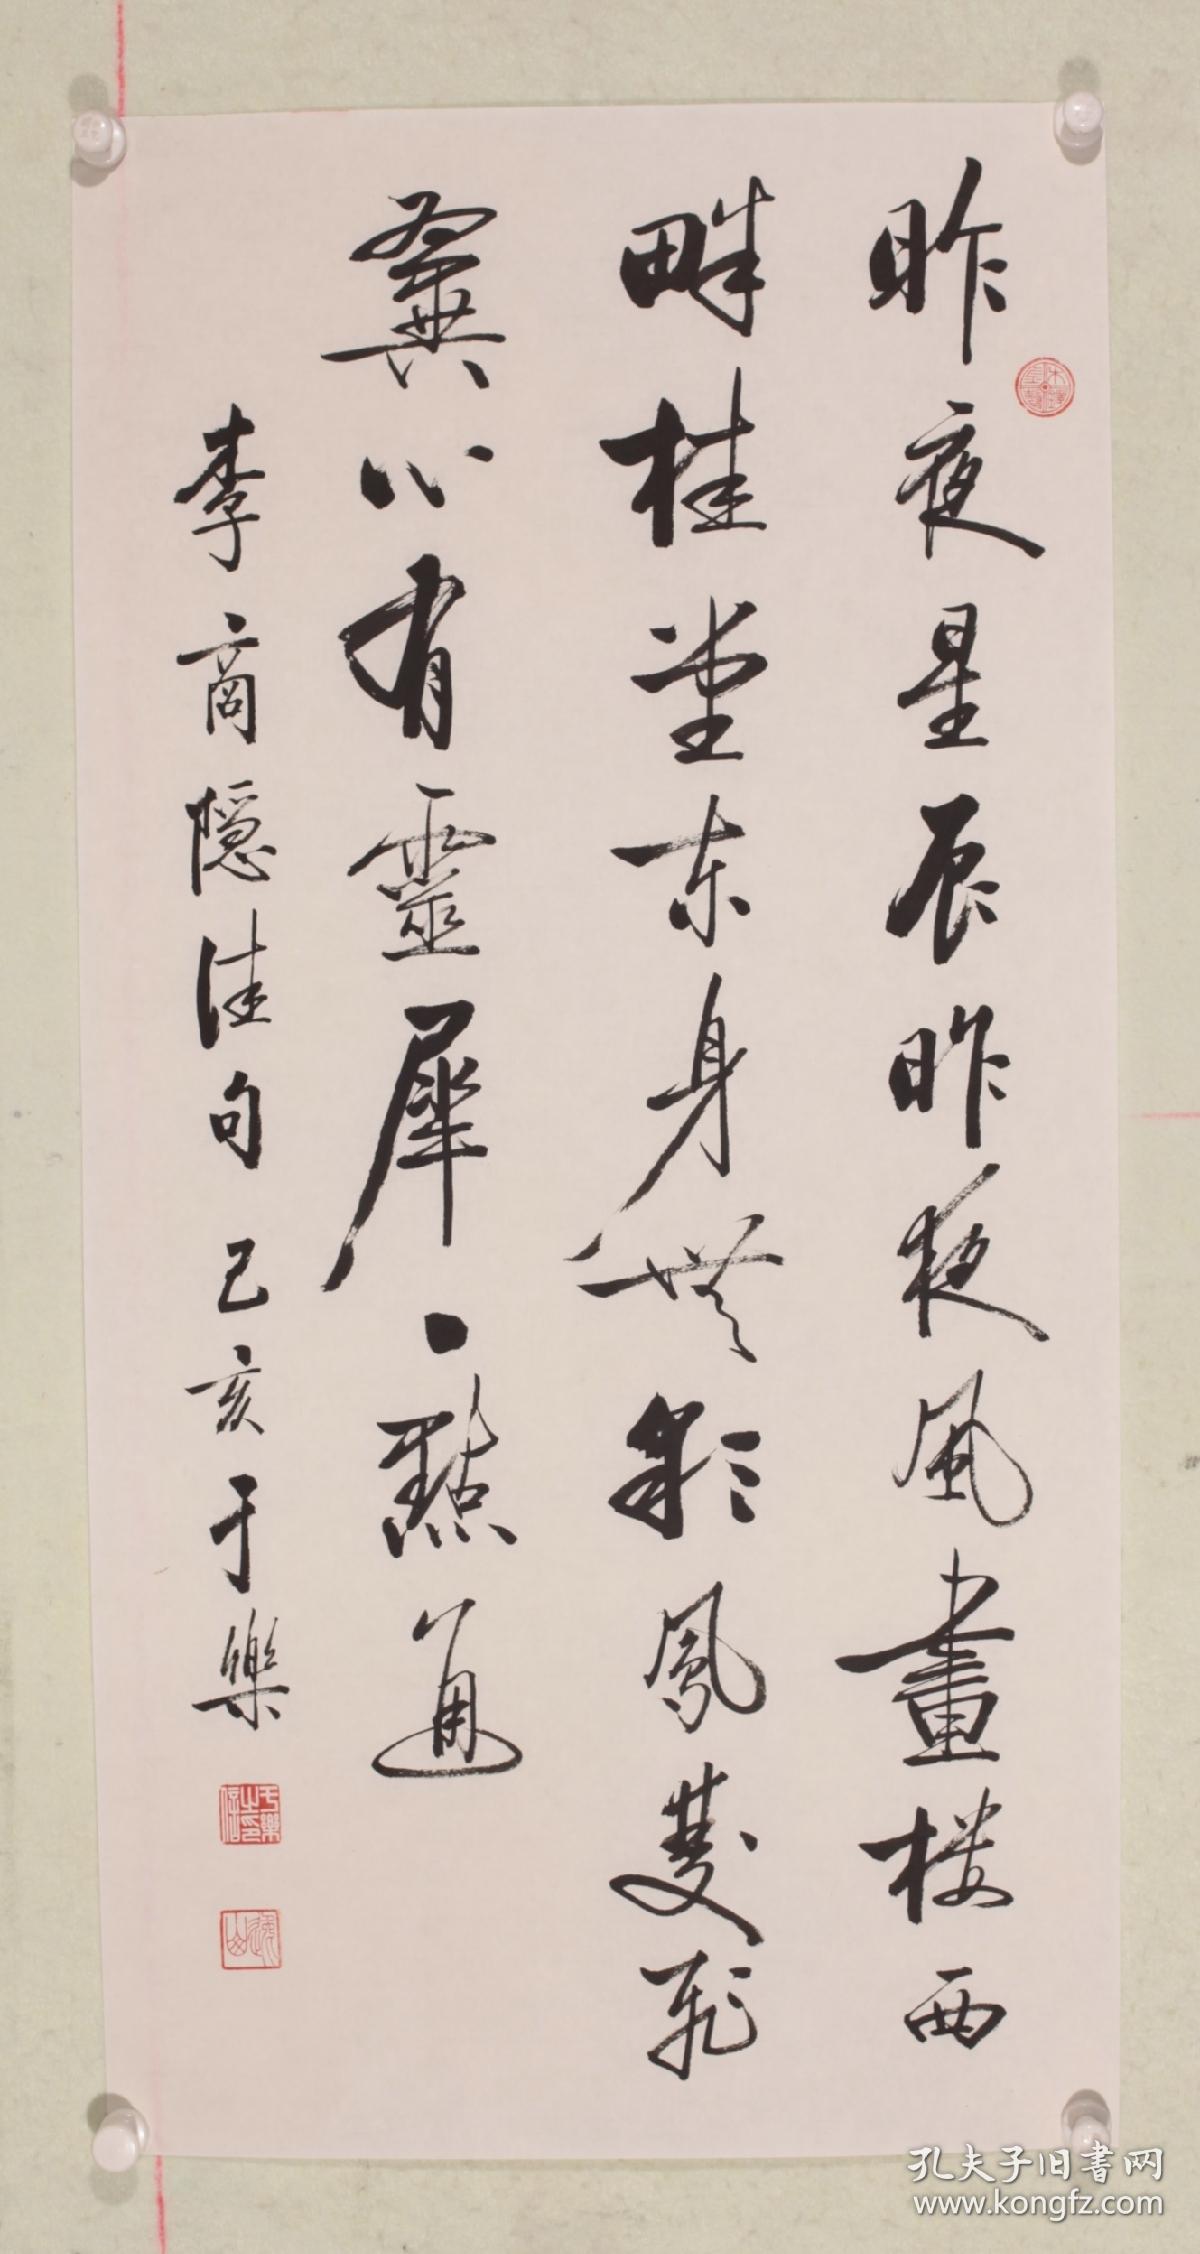 昨夜星辰昨夜風畫楼西
畔桂堂东身無彩鳳雙飛
翼心有靈犀一點通
李商隐佳句己亥于樂
孔夫子旧書网
www.kongfz.com